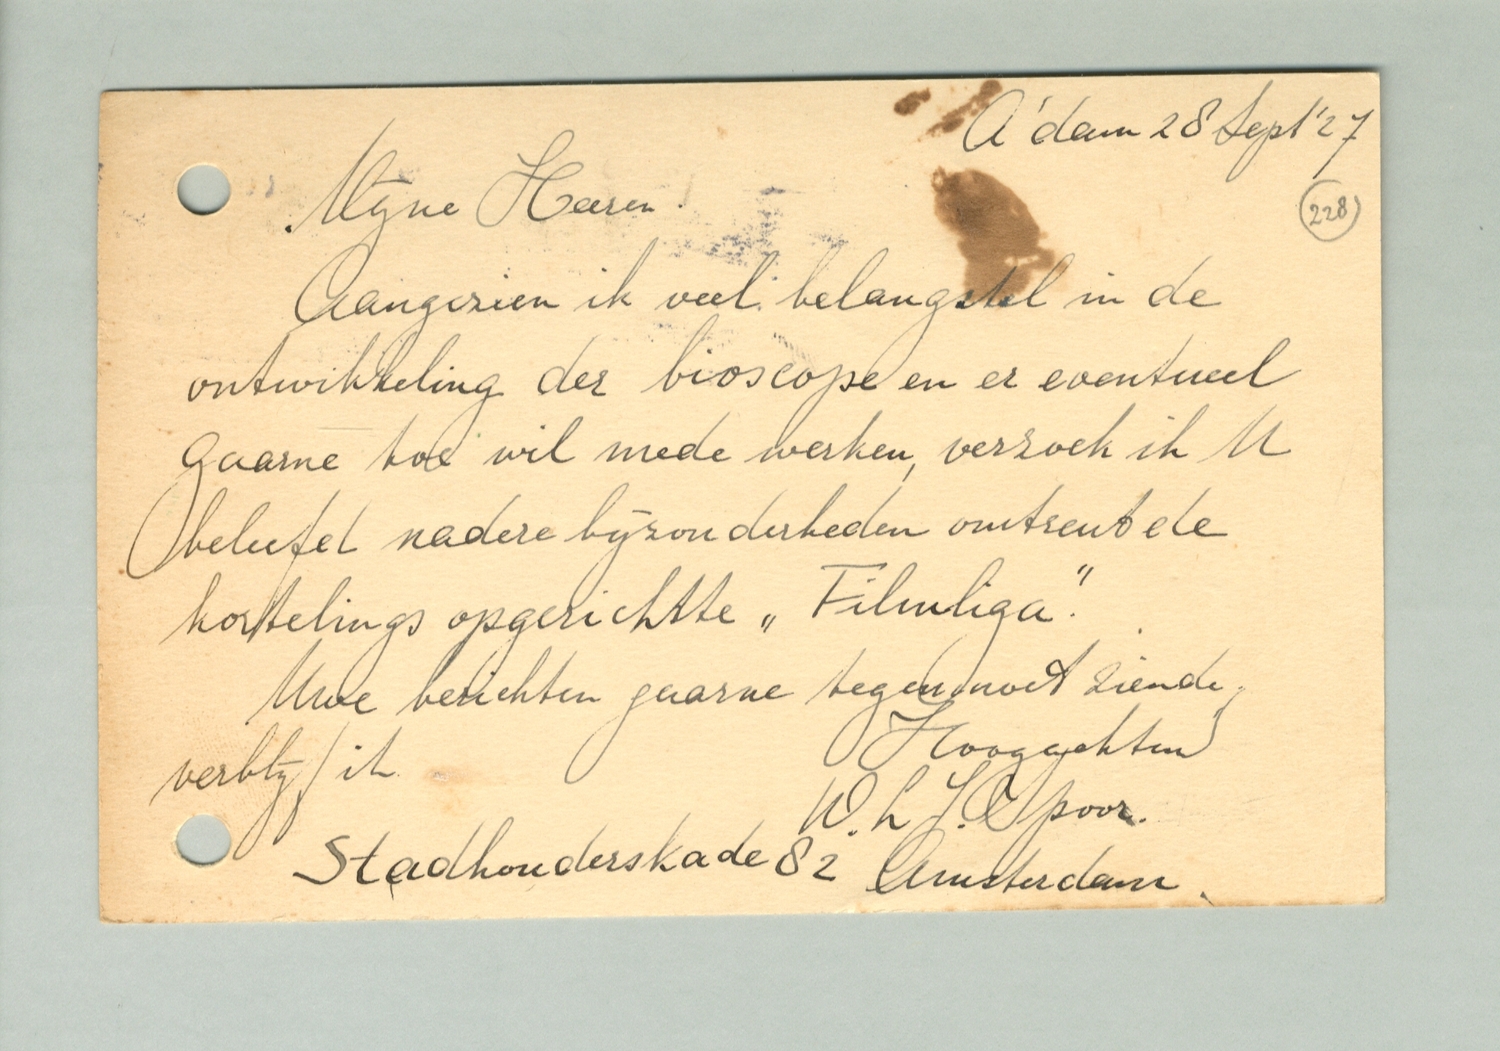 A'dam 28 Sept '27
228
Mijne Heeren!
Aangezien ik veel belangstel in de
ontwikkeling der bioscope en er eventueel
gaarne toe wil mede werken, verzoek ik U
beleefd nadere bijzonderheden omtrent de
kortelings opgerichtte „Filmliga”.
Uwe berichten gaarne tegemoet ziende,
verblijf ik
Hoogachtend
W. L. J. Spoor.
Stadhouderskade 82 Amsterdam.